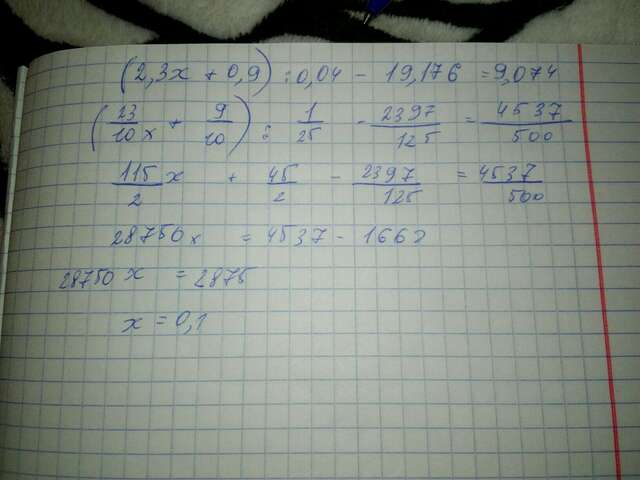 (2,3x + 0,9) : 0,04 - 19,176 = 9,074
(23/10 x + 9/10) : 1/25 - 2397/125 = 4537/500
115/2 x + 45/2 - 2397/125 = 4537/500
28750x = 4537 - 1662
28750 x = 2875
x = 0,1